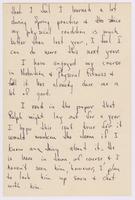 that I feel I learned a lot
during Spring practice & also since
my physical condition is much
better than last year, I feel I
can do more this next year.
I have enjoyed my course
in Federation & Physical Fitness &
feel it has already done me a
lot of good.
I read in the paper that
Ralph might lay out for a year
I hope this isn't true for it
would weaken the team if I
know anything about it. He
is here in town of course & I
haven't seen him however, I plan
to look him up soon & chat
with him.